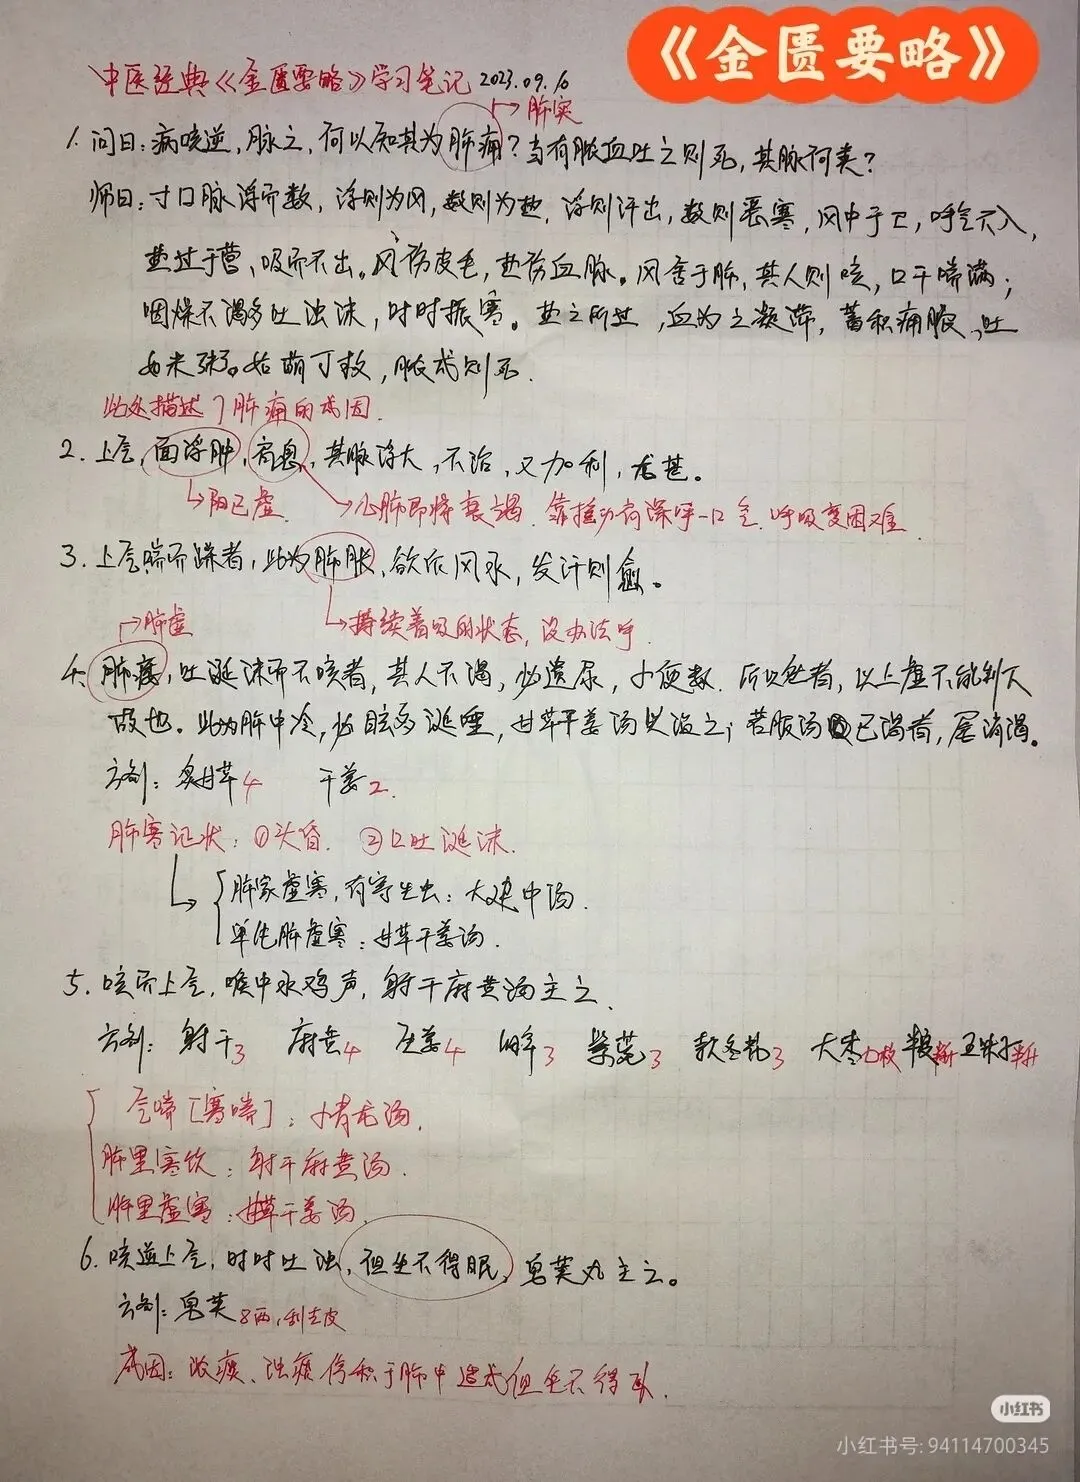 《金匮要略》
中医经典《金匮要略》学习笔记 2023.09.10
→肺实
1. 问曰：病咳逆，脉之，何以知其为肺痈？当有脓血吐之则死，其脉何类？
师曰：寸口脉浮而数，浮则为风，数则为热，浮则汗出，数则恶寒，风中于卫，呼气不入，
热过于营、吸而不出。风伤皮毛，热伤血脉。风舍于肺，其人则咳，口干喘满；
咽燥不渴多吐浊沫，时时振寒。热之所过，血为之凝滞，蓄积痈脓，吐
如米粥。始萌可救，脓成则死．
此处描述了肺痈的成因．
2. 上气，面浮肿，肩息，其脉浮大，不治，又加利，尤甚。
→阳已虚． →心肺即将衰竭．靠挪动肩深呼一口气．呼吸变困难
3. 上气喘而躁者，此为肺胀，欲作风水，发汗则愈。
→肺虚 →持续着吸的状态，没办法呼．
4. 肺痿，吐涎沫而不咳者，其人不渴，必遗尿，小便数．所以然者，以上虚不能制下
故也．此为肺中冷，必眩多涎唾，甘草干姜汤以温之；若服汤已渴者，属消渴。
方剂：炙甘草4 干姜2．
肺寒证状：①头昏． ②口吐涎沫．
肺家虚寒，有寄生虫：大建中汤．
单纯肺虚寒：甘草干姜汤．
5. 咳而上气，喉中水鸡声，射干麻黄汤主之．
方剂：射干3 麻黄4 生姜4 细辛3 紫菀3 款冬花3 大枣七枚 半夏半升 五味子半升
气喘［寒喘］：小青龙汤．
肺里寒饮：射干麻黄汤．
肺里虚寒：甘草干姜汤．
6. 咳逆上气，时时吐浊，但坐不得眠，皂荚丸主之。
方剂：皂荚8两，刮去皮
成因：浓痰、浊痰停积于肺中造成但坐不得卧．
小红书
小红书号：94114700345